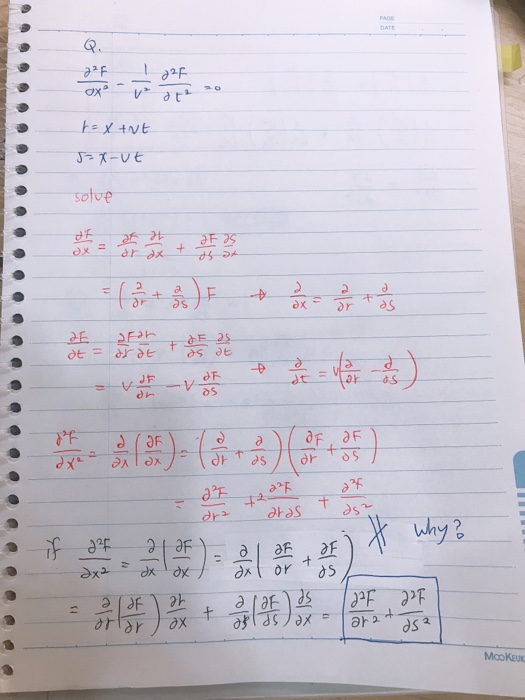 PAGE
DATE
Q.
∂²F/∂x² - 1/v² ∂²F/∂t² = 0
r = x + vt
s = x - vt
solve
∂F/∂x = ∂F/∂r ∂r/∂x + ∂F/∂s ∂s/∂x
= (∂/∂r + ∂/∂s) F → ∂/∂x = ∂/∂r + ∂/∂s
∂F/∂t = ∂F/∂r ∂r/∂t + ∂F/∂s ∂s/∂t
= v ∂F/∂r - v ∂F/∂s → ∂/∂t = v(∂/∂r - ∂/∂s)
∂²F/∂x² = ∂/∂x (∂F/∂x) = (∂/∂r + ∂/∂s)(∂F/∂r + ∂F/∂s)
= ∂²F/∂r² + 2 ∂²F/∂r∂s + ∂²F/∂s²
if ∂²F/∂x² = ∂/∂x (∂F/∂x) = ∂/∂x (∂F/∂r + ∂F/∂s) why?
= ∂/∂r (∂F/∂r) ∂r/∂x + ∂/∂s (∂F/∂s) ∂s/∂x = ∂²F/∂r² + ∂²F/∂s²